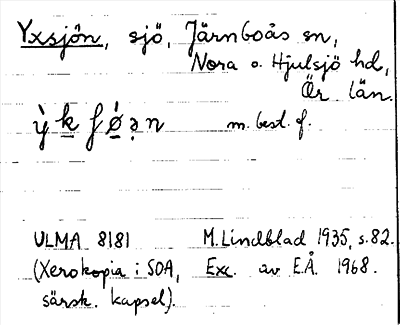 Yxsjön, sjö, Järnboås sn,
Nora o. Hjulsjö hd,
Ör län.
m. best. f.
ULMA 8181 M. Lindblad 1935, s. 82.
(Xerokopia i SOA, Exc. av E.Å. 1968.
särsk. kapsel).